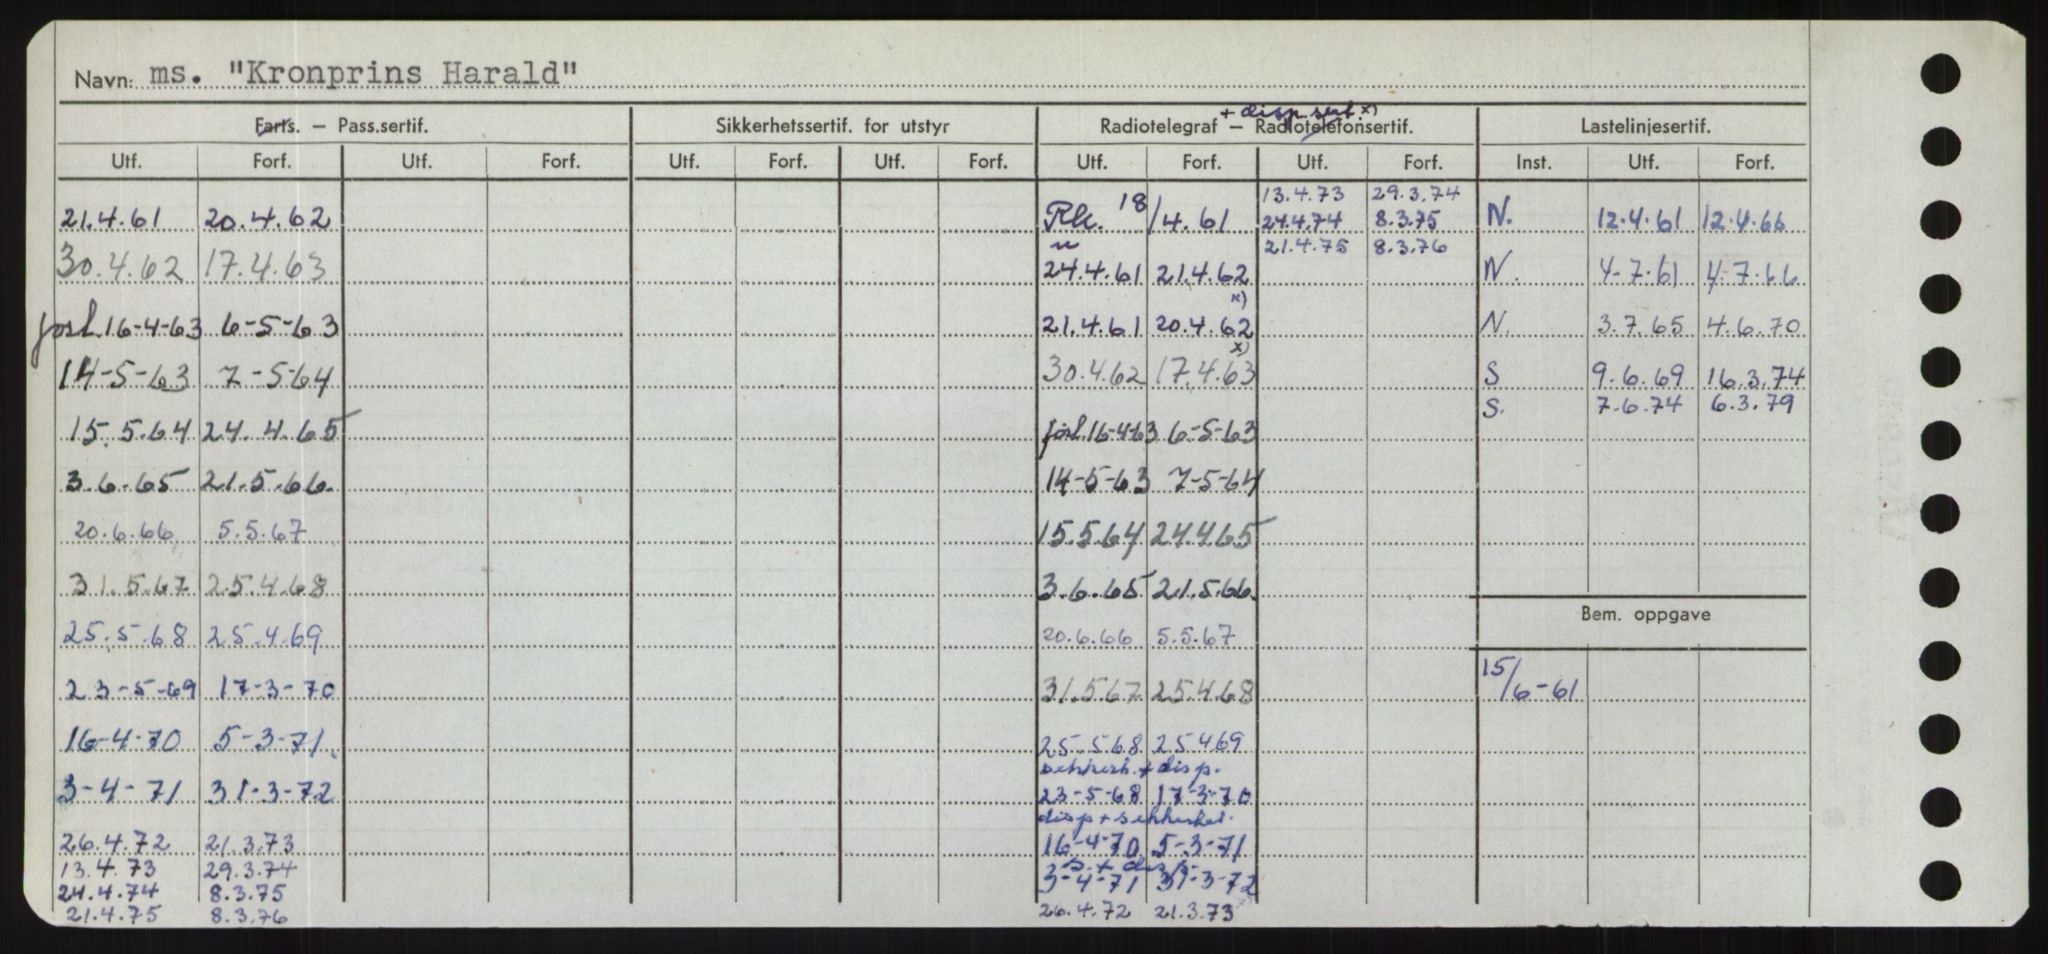 Navn: ms. "Kronprins Harald"
+ disp sert. x)
Farts. – Pass.sertif. Sikkerhetssertif. for utstyr Radiotelegraf – Radiotelefonsertif. Lastelinjesertif.
Utf. Forf. Utf. Forf. Utf. Forf. Utf. Forf. Utf. Forf. Utf. Forf. Inst. Utf. Forf.
13.4.73 29.3.74
21.4.61 20.4.62 18/4.61 24.4.74 8.3.75 N. 12.4.61 12.4.66
21.4.75 8.3.76
30.4.62 17.4.63 24.4.61 21.4.62 N. 4-7.61 4-7.66
x)
forl. 16-4-63 6-5-63 21.4.61 20.4.62 N. 3.7.65 4.6.70
x)
14-5-63 7-5-64 30.4.62 17.4.63 S 9.6.69 16.3.74
S. 7.6.74 6.3.79
15.5.64 24.4.65 forl. 16-4-63 6-5-63
3.6.65 21.5.66. 14-5-63 7-5-64
20.6.66 5.5.67 15.5.64 24.4.65
31.5.67 25.4.68 3.6.65 21.5.66.
Bem. oppgave
25.5.68 25.4.69 20.6.66 5.5.67
23-5-69 17-3-70 31.5.67 25.4.68 15/6-61
16-4-70 5-3-71. 25.5.68 25.4.69
sikkerh. + disp.
3-4-71 31-3-72 23-5-68 17-3-70
disp + sikkerhet.
26.4.72 21.3.73 16-4-70 5-3-71
s. + disp.
13.4.73 29.3.74 3-4-71 31-3-72
24.4.74 8.3.75
21.4.75 8.3.76 26.4.72 21.3.73